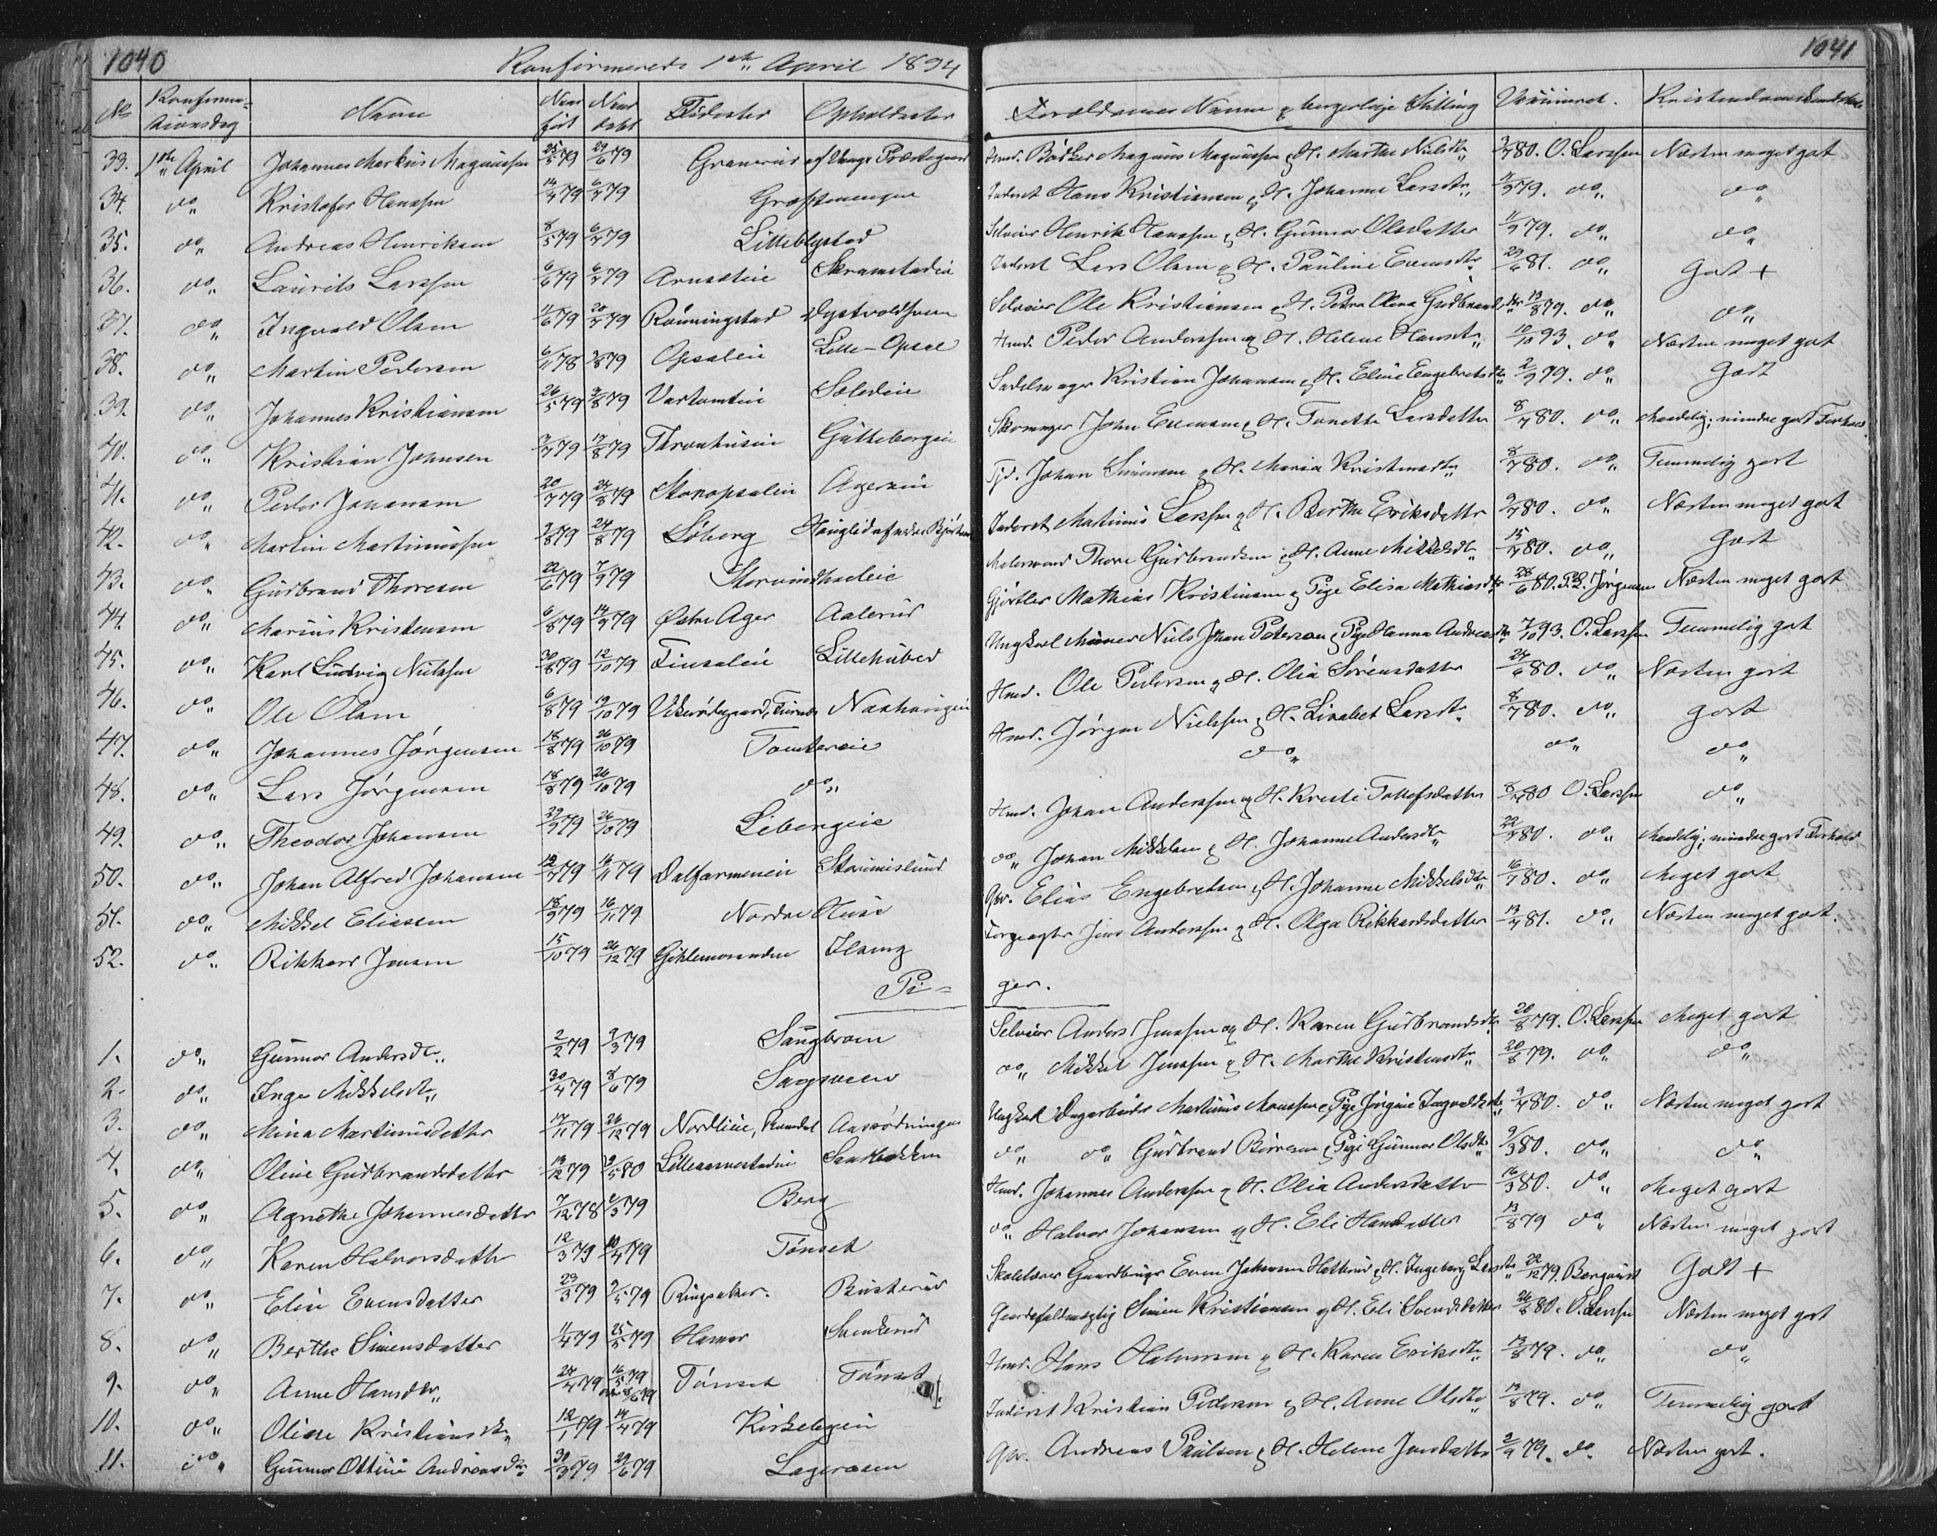 1040
Konfirmerede 1ste April 1894
1041
No Konfirma-tionsdag Navn Naar født Naar døbt Fødested Opholdssted Forældrenes Navne & borgerlige Stilling Vaccineret. Kristendomskundskab
33. 1ste April Johannes Markus Magnussen 25/5 79 29/6 79 Granerud af Vangs Præstegaard Hmd. Bødker Magnus Magnussen & H. Marthe Nilsdtr 80. O. Larssen Næsten meget godt
34. do Kristofer Hanssen 14/4 79 6/7 79 Græstuengen Inderst Hans Kristiansen & H. Johanne Larsdtr 79. do do
35. do Andreas Henriksen 8/5 79 6/7 79 Litleblystad Selveier Henrik Hanssen & H. Gunnor Olsdatter 79. do do
36. do Laurits Larssen 6/6 79 6/7 79 Arnesteie Skramstadeie Inderst Lars Olsen & H. Pauline Evensdtr 29/6 81. do Godt +
37. do Ingvald Olsen 11/6 79 20/7 79 Rønningstad Dystvoldhven Selveier Ole Kristiansen & H. Petra Olena Gudbrandsdtr 13/8 79. do do
38. do Martin Pedersen 6/11 78 3/8 79 Opsaleie Litle-Opsal Hmd. Peder Anderssen & H. Helene Hansdtr 10/10 93. do Næsten meget godt
39. do Johannes Kristiansen 26/5 79 3/8 79 Vartomteie Soleleie Sadelmager Kristian Johansen & H. Eline Engebretsdtr 2/9 79. do Godt
40. do Kristian Johnsen 2/7 79 17/8 79 Thronhuseie Gutteborgeie Skomager John Evensen & H. Tonette Larsdatter 8/7 80. do Maadelig; mindre godt Forhold.
41. do Peder Johansen 20/7 79 24/8 79 Storopsaleie Agerseie Tjd. Johan Simensen & H. Maria Kristiansdtr 8/7 80. do Temmelig godt
42. do Martin Martinussen 3/8 79 24/8 79 Løberg Inderst Martinus Larssen & H. Berthe Eriksdatter 9/7 80. do Næsten meget godt
43. do Gudbrand Thoresen 22/6 79 7/9 79 Storvindhuseie Thore Gudbrandsen & H. Anne Mikkelsdtr 15/7 80. do Godt
44. do Marius Kristensen 6/8 79 14/9 79 Østre Ager Aalerud Gjørtler Mathias Kristiansen & Pige Elisa Mathiasdtr 28/6 80. P.L. Jørgensen Næsten meget godt
45. do Karl Ludvig Nielsen 30/8 79 12/10 79 Finsaleie Lillehubred Ungkarl Murer Niels Johan Petersen & Pige Hanna Andreasdtr 7/10 93. O. Larssen Temmelig godt
46. do Ole Olsen 6/8 79 19/10 79 Hmd. Ole Pedersen & H. Olia Sørensdatter 24/6 80. do Næsten godt
47. do Johannes Jørgensen 18/8 79 26/10 79 Tomtereie Hmd. Jørgen Nielssen & H. Lisabet Larsdtr 8/7 80. do Godt
48. do Lars Jørgensen 18/8 79 26/10 79 do do do do
49. do Theodor Johansen 29/9 79 26/10 79 Libergeie Hmd. Johan Anderssen & H. Kristi Tollefsdatter 8/7 80 O. Larssen do
50. do Johan Alfred Johansen 12/9 79 16/11 79 Dalfarmeneie Storimislund do Johan Mikkelsen & H. Johanne Andersdtr 22/7 80. do Maadelig; mindre godt Forhold
51. do Mikkel Eliassen 18/9 79 16/11 79 Nordre Huse Gbr. Elias Engebretsen & H. Johanne Mikkelsdtr 16/7 80. do Meget godt
52. do Rikkard Jensen 15/10 79 26/12 79 Jens Anderssen & H. Olga Rikkardsdatter 13/7 81. do Næsten meget godt.
Pi-ger.
1. do Gunnor Andersdtr 2/2 79 9/3 79 Saugbraaen Selveier Anders Jenssen & H. Karen Gudbrandsdtr 20/8 79. O. Larssen Meget godt
2. do Inga Mikkelsdtr 30/4 79 8/6 79 Sangsveen do Mikkel Jenssen & H. Marthe Kristensdtr 20/8 79. do do
3. do Mina Martinusdatter 17/11 79 26/12 79 Nordlien, Romedal Ungkarl Dagarbeider Martinus Monssen & Pige Jørgine Ingvaldsdtr 9/7 80. do Næsten meget godt
4. do Oline Gudbrandsdatter 13/12 79 9/5 80 Lilleaarnestadeie Sandbakken do do Gudbrand Børresen & Pige Gunnor Olsdtr 9/3 80. do do
5. do Agnethe Johannesdatter 7/12 78 6/3 79 Berg Hmd. Johannes Anderssen & H. Olia Andersdatter 16/3 80. do Meget godt
6. do Karen Halvorsdatter 12/3 79 10/4 79 Tønset do Halvor Johansen & H. Eli Hansdatter 13/8 79 do Næsten meget godt
7. do Elin Evensdatter 29/3 79 2/5 79 Ringsaker. Buskerud Skolelærer Gaardbruger Even Johansen Hatterud & H. Ingeborg Larsdtr 22/12 79. Bergquist Godt +
8. do Berthe Simensdatter 11/4 79 25/5 79 Hamar Svenkerud Gaardsfuldmægtig Simen Kristiansen & H. Eli Svendsdatter 26/8 80. O. Larssen Næsten meget godt
9. do Anne Hansdtr 24/4 79 16/5 79 Tønset Tønset Hmd. Hans Halvorsen & H. Karen Eriksdtr 13/8 79. do do
10. do Oline Kristiansdtr 12/1 79 14/4 79 Kirkelegeie Inderst Kristian Pedersen & H. Anne Olsdtr 13/8 79. do Temmelig godt
11. do Gunnor Ottine Andreasdtr 30/3 79 29/6 79 Lageraaen Gbr. Andreas Paulsen & H. Helene Jensdatter 2/9 79. do Næsten godt.